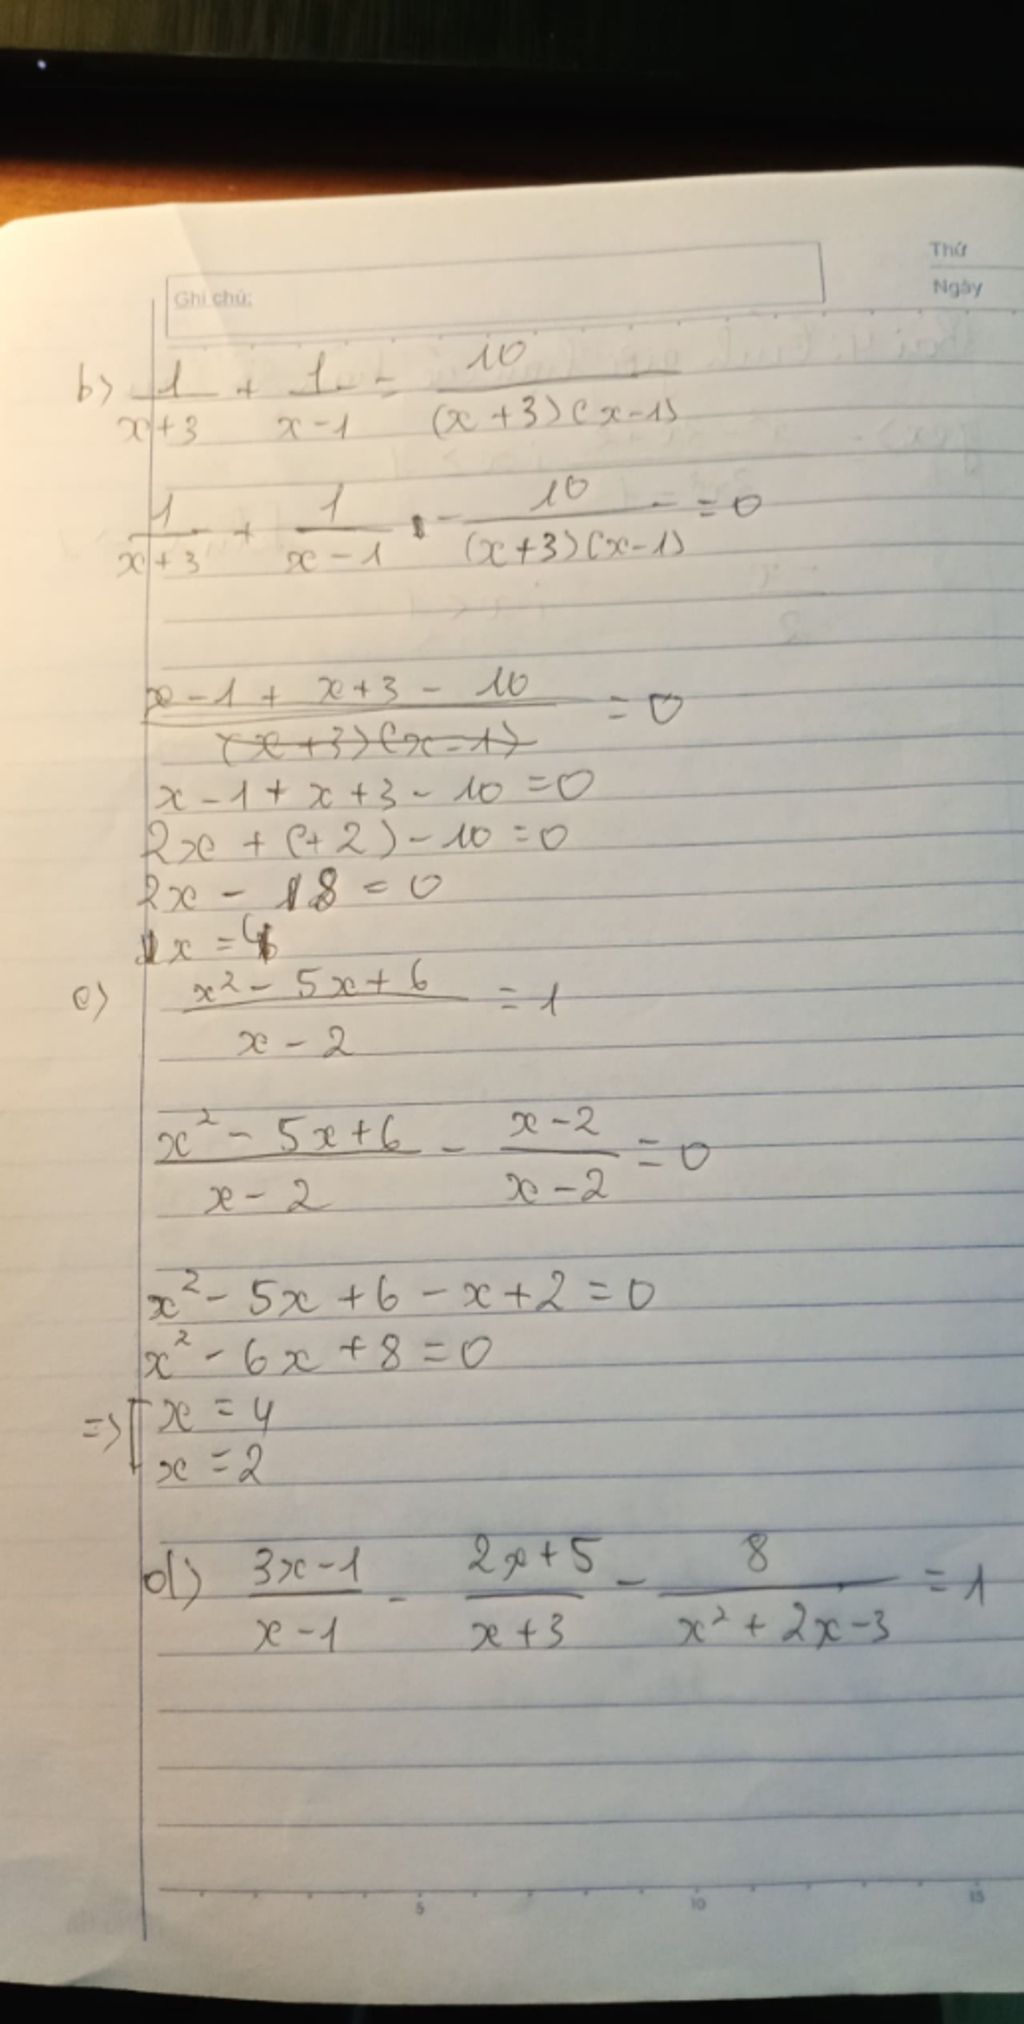 Thứ
Ghi chú:
Ngày
b) 1/(x+3) + 1/(x-1) = 10/((x+3)(x-1))
1/(x+3) + 1/(x-1) - 10/((x+3)(x-1)) = 0
(x-1 + x+3 - 10)/((x+3)(x-1)) = 0
x - 1 + x + 3 - 10 = 0
2x + (+2) - 10 = 0
2x - 8 = 0
x = 4
c) (x² - 5x + 6)/(x - 2) = 1
(x² - 5x + 6)/(x - 2) - (x-2)/(x-2) = 0
x² - 5x + 6 - x + 2 = 0
x² - 6x + 8 = 0
=> [ x = 4
x = 2
d) (3x-1)/(x-1) - (2x+5)/(x+3) - 8/(x² + 2x - 3) = 1
5 10 15